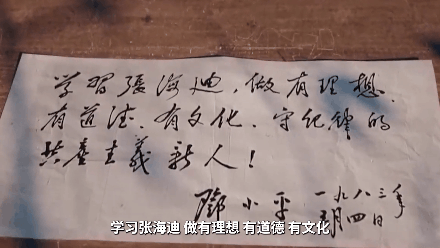 学習張海迪，做有理想、
有道德、有文化、守纪律的
共产主義新人！
鄧小平 一九八三年
三月四日
学习张海迪 做有理想 有道德 有文化